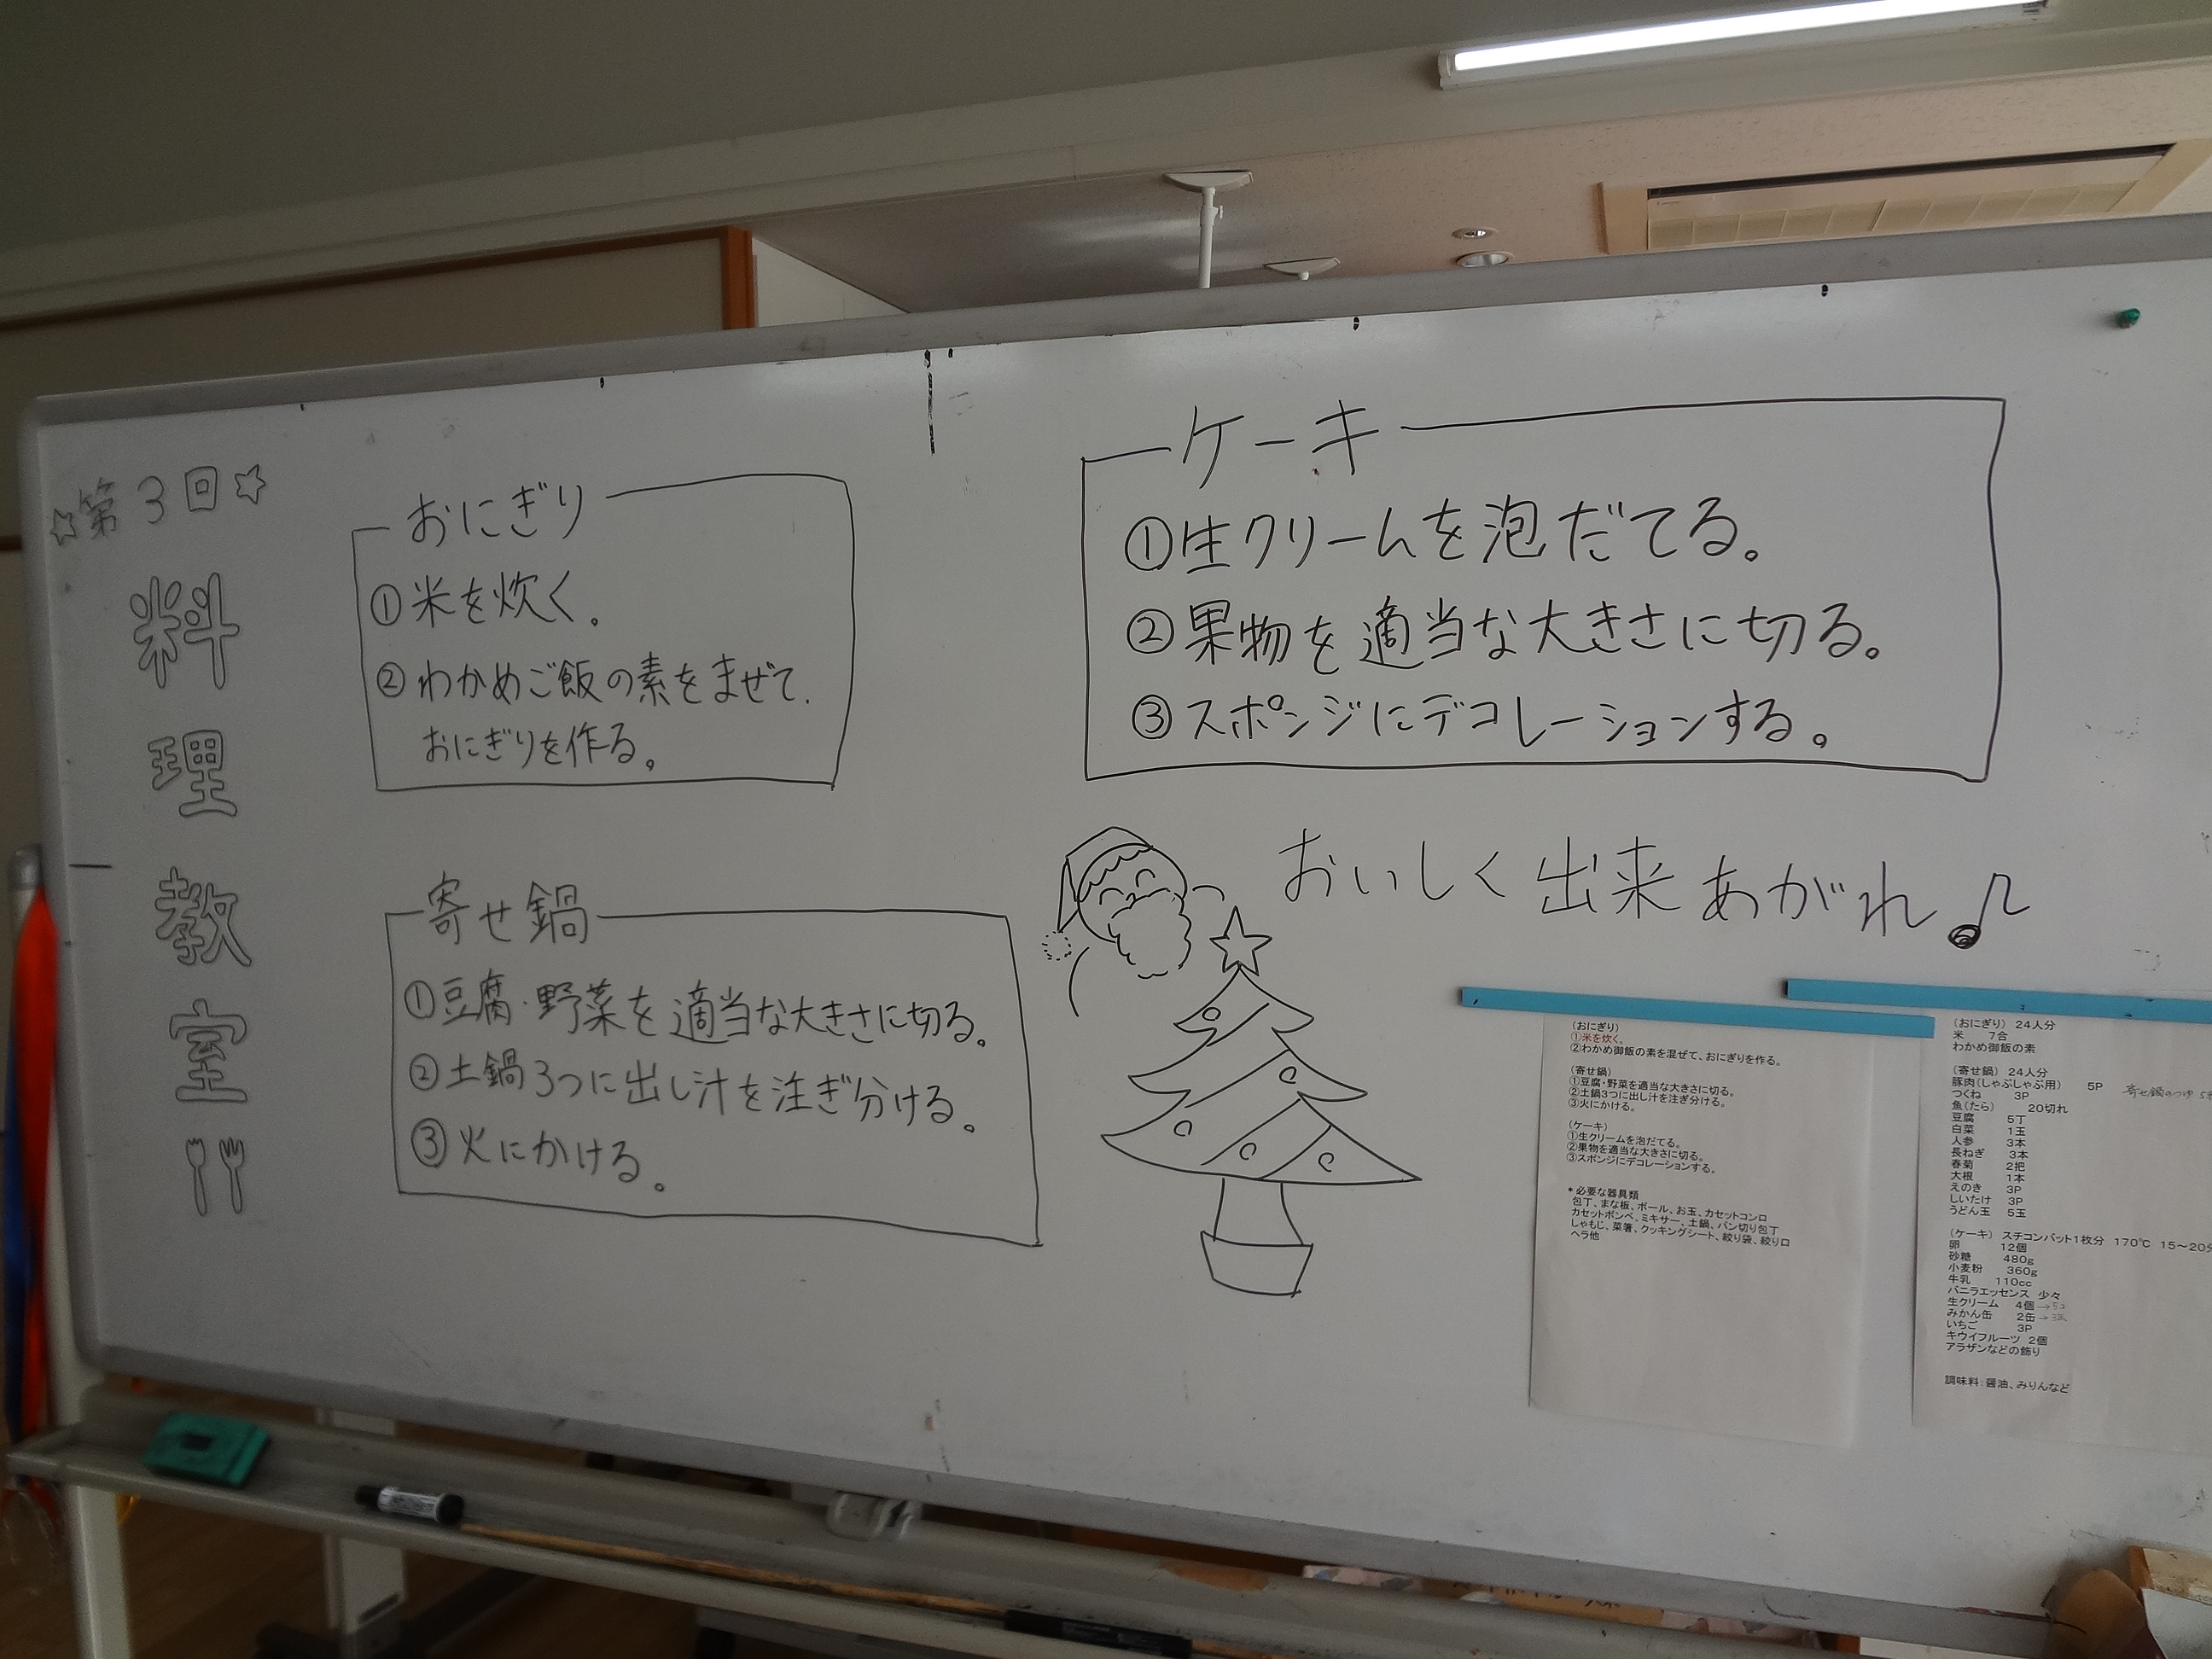 ☆第3回☆
料理教室
おにぎり
①米を炊く。
②わかめご飯の素をまぜて、
おにぎりを作る。
寄せ鍋
①豆腐・野菜を適当な大きさに切る。
②土鍋3つに出し汁を注ぎ分ける。
③火にかける。
ケーキ
①生クリームを泡だてる。
②果物を適当な大きさに切る。
③スポンジにデコレーションする。
おいしく出来あがれ♪
(おにぎり)
①米を炊く。
②わかめ御飯の素を混ぜて、おにぎりを作る。
(寄せ鍋)
①豆腐・野菜を適当な大きさに切る。
②土鍋3つに出し汁を注ぎ分ける。
③火にかける。
(ケーキ)
①生クリームを泡だてる。
②果物を適当な大きさに切る。
③スポンジにデコレーションする。
*必要な器具類
包丁、まな板、ボール、お玉、カセットコンロ
カセットボンベ、ミキサー、土鍋、パン切り包丁
しゃもじ、菜箸、クッキングシート、絞り袋、絞り口
ヘラ他
(おにぎり) 24人分
米 7合
わかめ御飯の素
(寄せ鍋) 24人分
豚肉(しゃぶしゃぶ用) 5P 寄せ鍋のつゆ
つくね 3P
魚(たら) 20切れ
豆腐 5丁
白菜 1玉
人参 3本
長ねぎ 3本
春菊 2把
大根 1本
えのき 3P
しいたけ 3P
うどん玉 5玉
(ケーキ) スチコンバット1枚分 170℃ 15～20分
卵 12個
砂糖 480g
小麦粉 360g
牛乳 110cc
バニラエッセンス 少々
生クリーム 4個→5コ
みかん缶 2缶→3缶
いちご 3P
キウイフルーツ 2個
アラザンなどの飾り
調味料：醤油、みりんなど